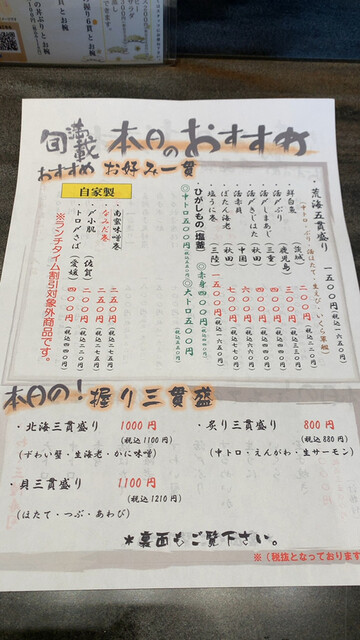 旬
満載
本日のおすすめ
おすすめ お好み一貫
・荒海五貫盛り 一五〇〇円(税込一六五〇円)
・鮮白魚(茨城) 二〇〇円(税込二二〇円)
(鹿児島) 三〇〇円(税込三三〇円)
(三重) 四〇〇円(税込四四〇円)
(秋田) 四〇〇円(税込四四〇円)
・活赤貝(中国)
・ぼたん海老(秋田) 七〇〇円(税込七七〇円)
・塩うに巻(三陸) 一五〇〇円(税込一六五〇円)
ひがしもの(塩釜)
◎赤身四〇〇円(税込四四〇円)
◎中トロ五〇〇円
◎大トロ五〇〇円
自家製
・南蛮味噌巻 二五〇円(税込二七五円)
・なみだ巻 二五〇円(税込二七五円)
・〆小肌(佐賀) 二〇〇円(税込二二〇円)
・トロ〆さば(愛媛) 四〇〇円(税込四四〇円)
※ランチタイム割引対象外商品です。
本日の!握り三貫盛
・北海三貫盛り 1000円
(税込1100円)
(ずわい蟹・生海老・かに味噌)
・炙り三貫盛り 800円
(税込880円)
(中トロ・えんがわ・生サーモン)
・貝三貫盛り 1100円
(税込1210円)
(ほたて・つぶ・あわび)
*裏面もご覧下さい。
※〔税抜となっております